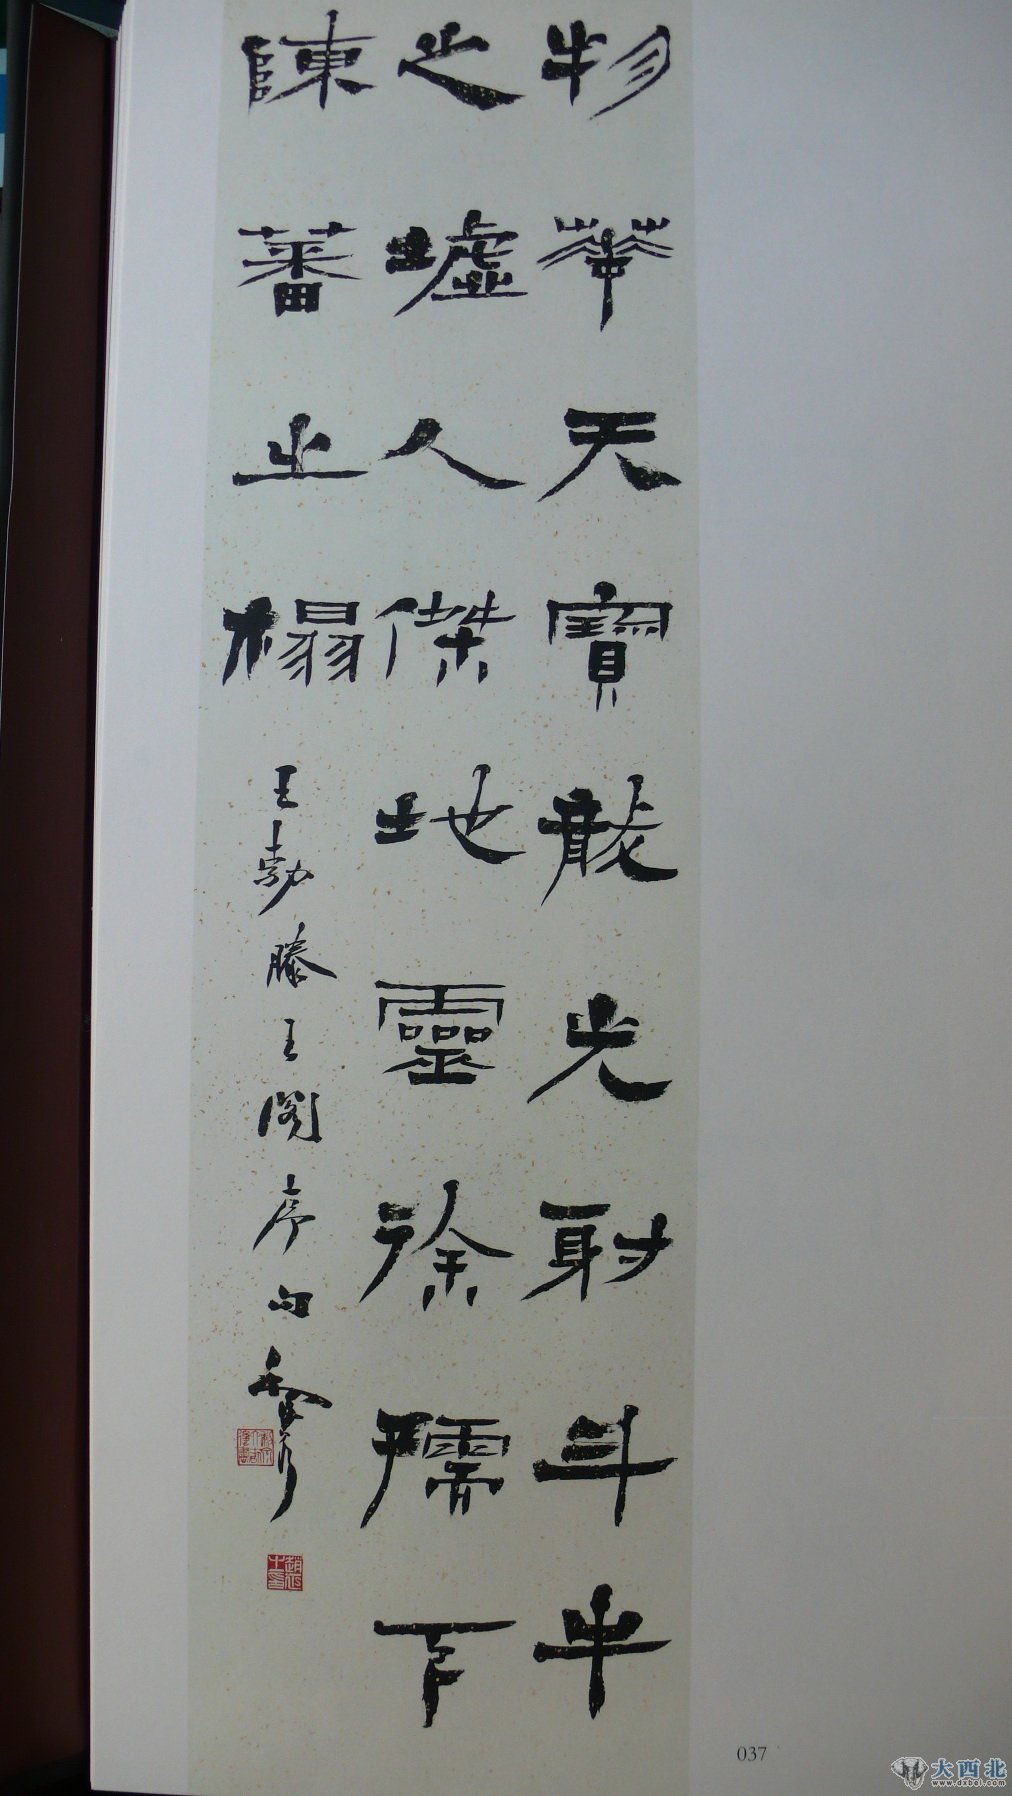 物華天寶龍光射斗牛
之墟人傑地靈徐孺下
陳蕃之榻
王勃滕王閣序句
037
大西北
www.dxbei.com